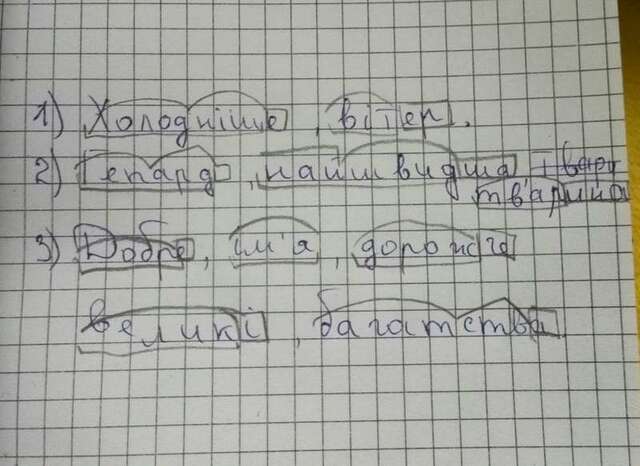 1) Холодніше, вітер.
2) Гепард, найшвидша твари
тварина
3) Добре, ім'я, дорожче
великі, багатства